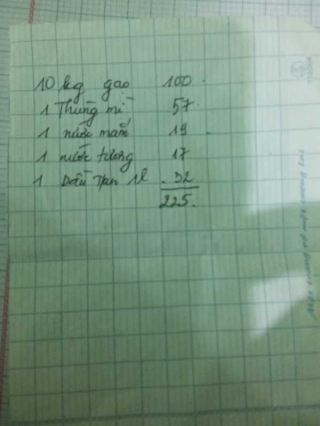 10 kg gạo 100
1 Thùng mì 57
1 nước mắm 19
1 nước tương 17
1 Dầu 1l 32
225